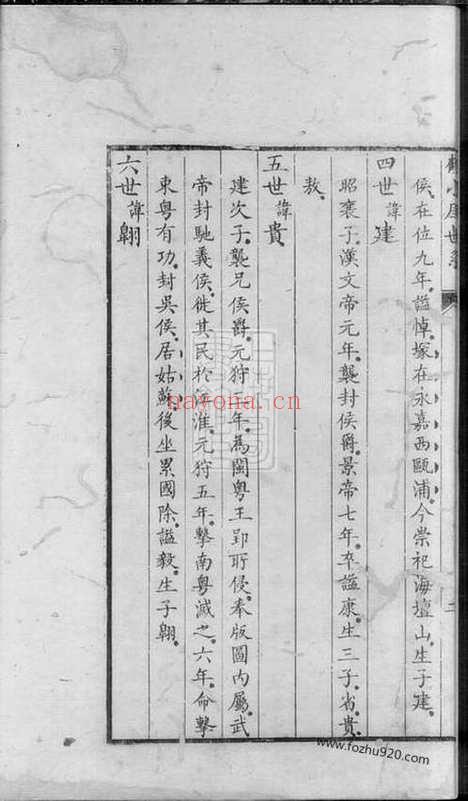 侯在位九年謚悼塚在永嘉西甌浦今崇祀海壇山生子建
四世諱建
昭襄子漢文帝元年襲封侯爵景帝七年卒謚康生三子省貴
敖
五世諱貴
建次子襲兄侯爵元狩年為閩粵王郢所侵奉版圖內屬武
帝封馳義侯徙其民於江淮元狩五年擊南粵滅之六年命擊
東粵有功封吳侯居姑蘇後坐累國除謚毅生子翱
六世諱翱
nayona.cn
www.fozhu920.com